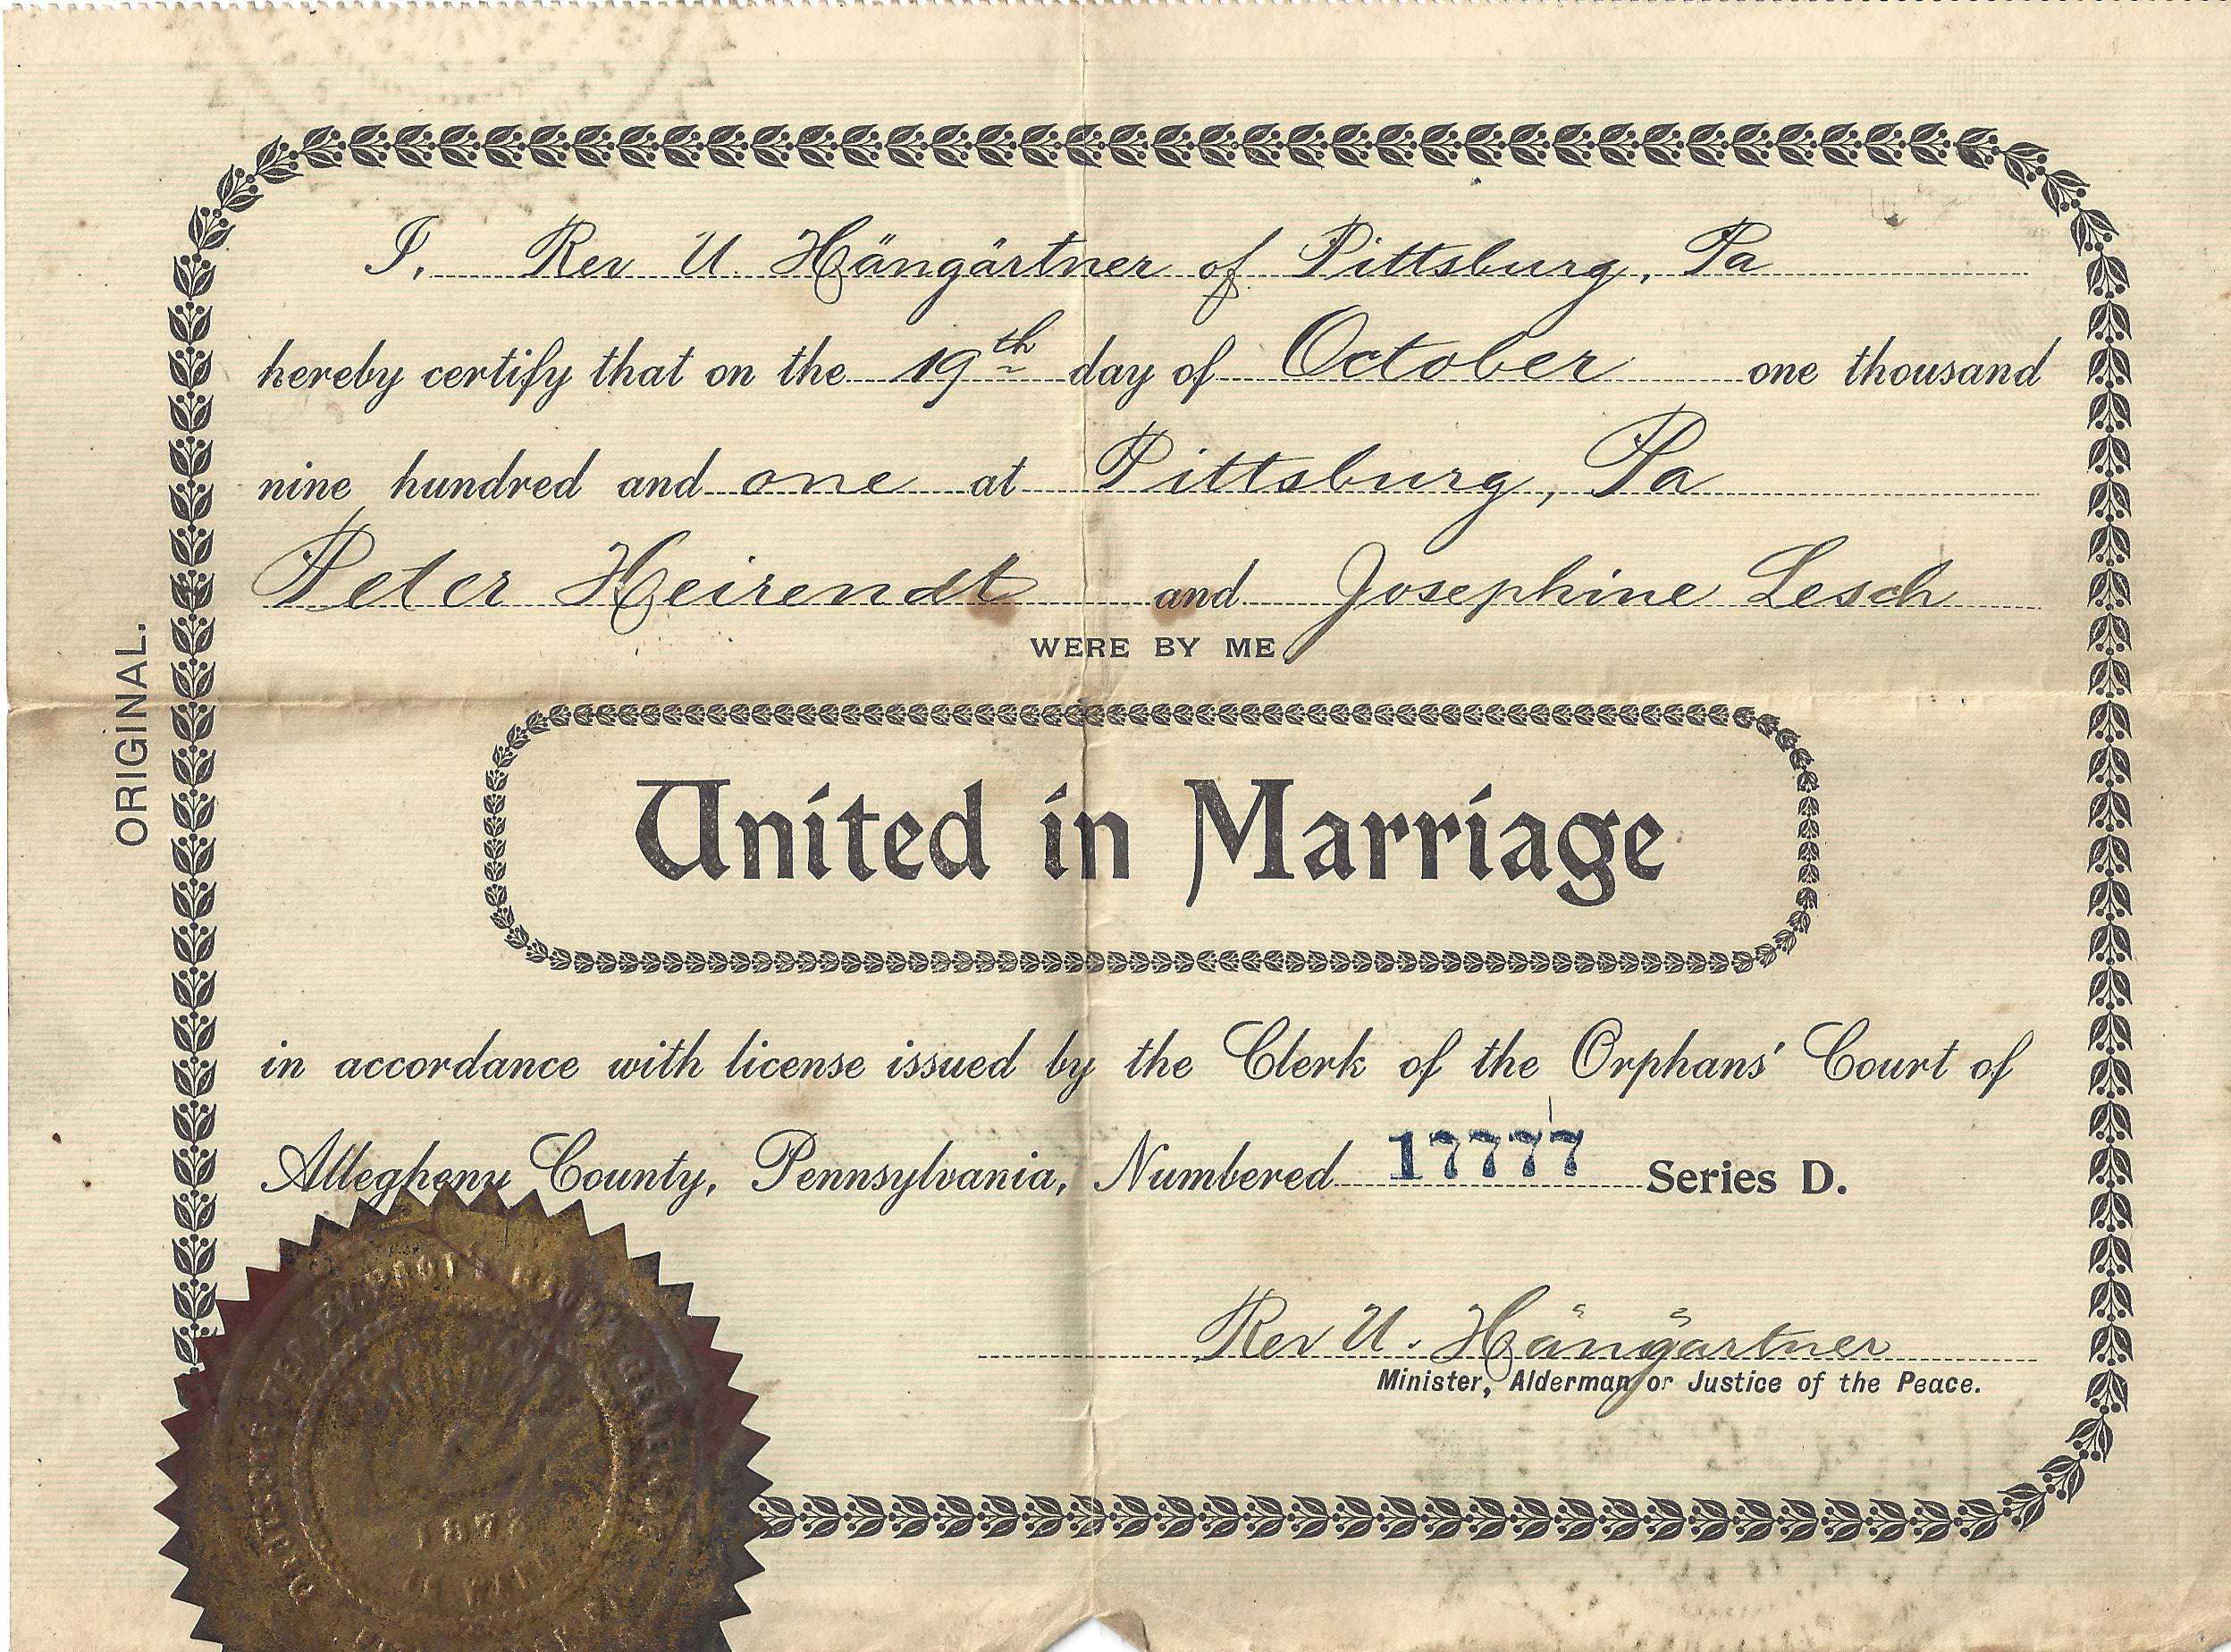 I, Rev U. Hängärtner of Pittsburg, Pa
hereby certify that on the 19th day of October one thousand
nine hundred and one at Pittsburg, Pa
Peter Heirendt and Josephine Lesch
WERE BY ME
ORIGINAL.
United in Marriage
in accordance with license issued by the Clerk of the Orphans' Court of
Allegheny County, Pennsylvania, Numbered 17777 Series D.
Rev U. Hängärtner
Minister, Alderman or Justice of the Peace.